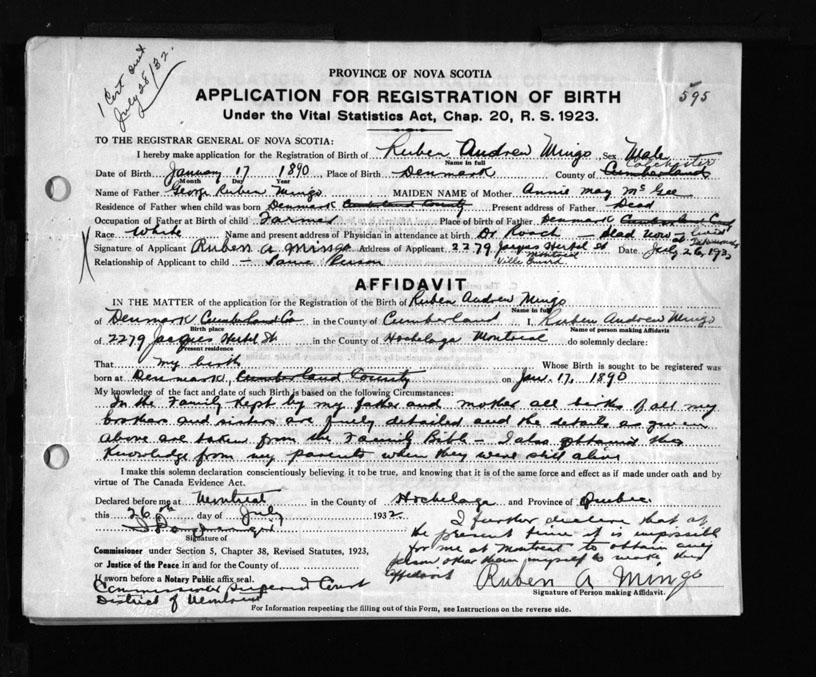 1 Cert sent
July 28/32.
595
PROVINCE OF NOVA SCOTIA
APPLICATION FOR REGISTRATION OF BIRTH
Under the Vital Statistics Act, Chap. 20, R. S. 1923.
TO THE REGISTRAR GENERAL OF NOVA SCOTIA:
I hereby make application for the Registration of Birth of Ruben Andrew Mingo Sex Male
Name in full
Colchester
Date of Birth January 17 1890 Place of Birth Denmark County of Cumberland
Month Day Year
Name of Father George Ruben Mingo MAIDEN NAME of Mother Annie May McGee
Residence of Father when child was born Denmark Cumberland County Present address of Father Dead
Occupation of Father at Birth of child Farmer Place of birth of Father Denmark Cumberland
Race White Name and present address of Physician in attendance at birth Dr Roach - Dead now - lived
at Tatamagouche
Signature of Applicant Ruben A Mingo Address of Applicant 2279 Jacques Hertel St Date July 26, 193
Montreal
Relationship of Applicant to child - Same Person
Ville Emard
AFFIDAVIT
IN THE MATTER of the application for the Registration of the Birth of Ruben Andrew Mingo
Name in full
of Denmark Cumberland Co in the County of Cumberland I, Ruben Andrew Mingo
Birth place Name of person making Affidavit
of 2279 Jacques Hertel St in the County of Hochelaga Montreal do solemnly declare:
Present residence
That my birth Whose Birth is sought to be registered was
born at Denmark, Cumberland County on Jan. 17, 1890
My knowledge of the fact and date of such Birth is based on the following Circumstances:
In the Family kept by my father and mother all births of all my
brothers and sisters are fully detailed and the details as given
above are taken from the Family Bible - I also obtained this
knowledge from my parents when they were still alive
I make this solemn declaration conscientiously believing it to be true, and knowing that it is of the same force and effect as if made under oath and by
virtue of The Canada Evidence Act.
Declared before me at Montreal in the County of Hochelaga and Province of Quebec.
this 26th day of July 1932.
Signature of
Commissioner under Section 5, Chapter 38, Revised Statutes, 1923,
or Justice of the Peace in and for the County of
If sworn before a Notary Public affix seal.
Commissioner Superior Court
District of Montreal
I further declare that at
the present time it is impossible
for me at Montreal to obtain any
person other than myself to make this
affidavit
Ruben A Mingo
Signature of Person making Affidavit.
For Information respecting the filling out of this Form, see Instructions on the reverse side.